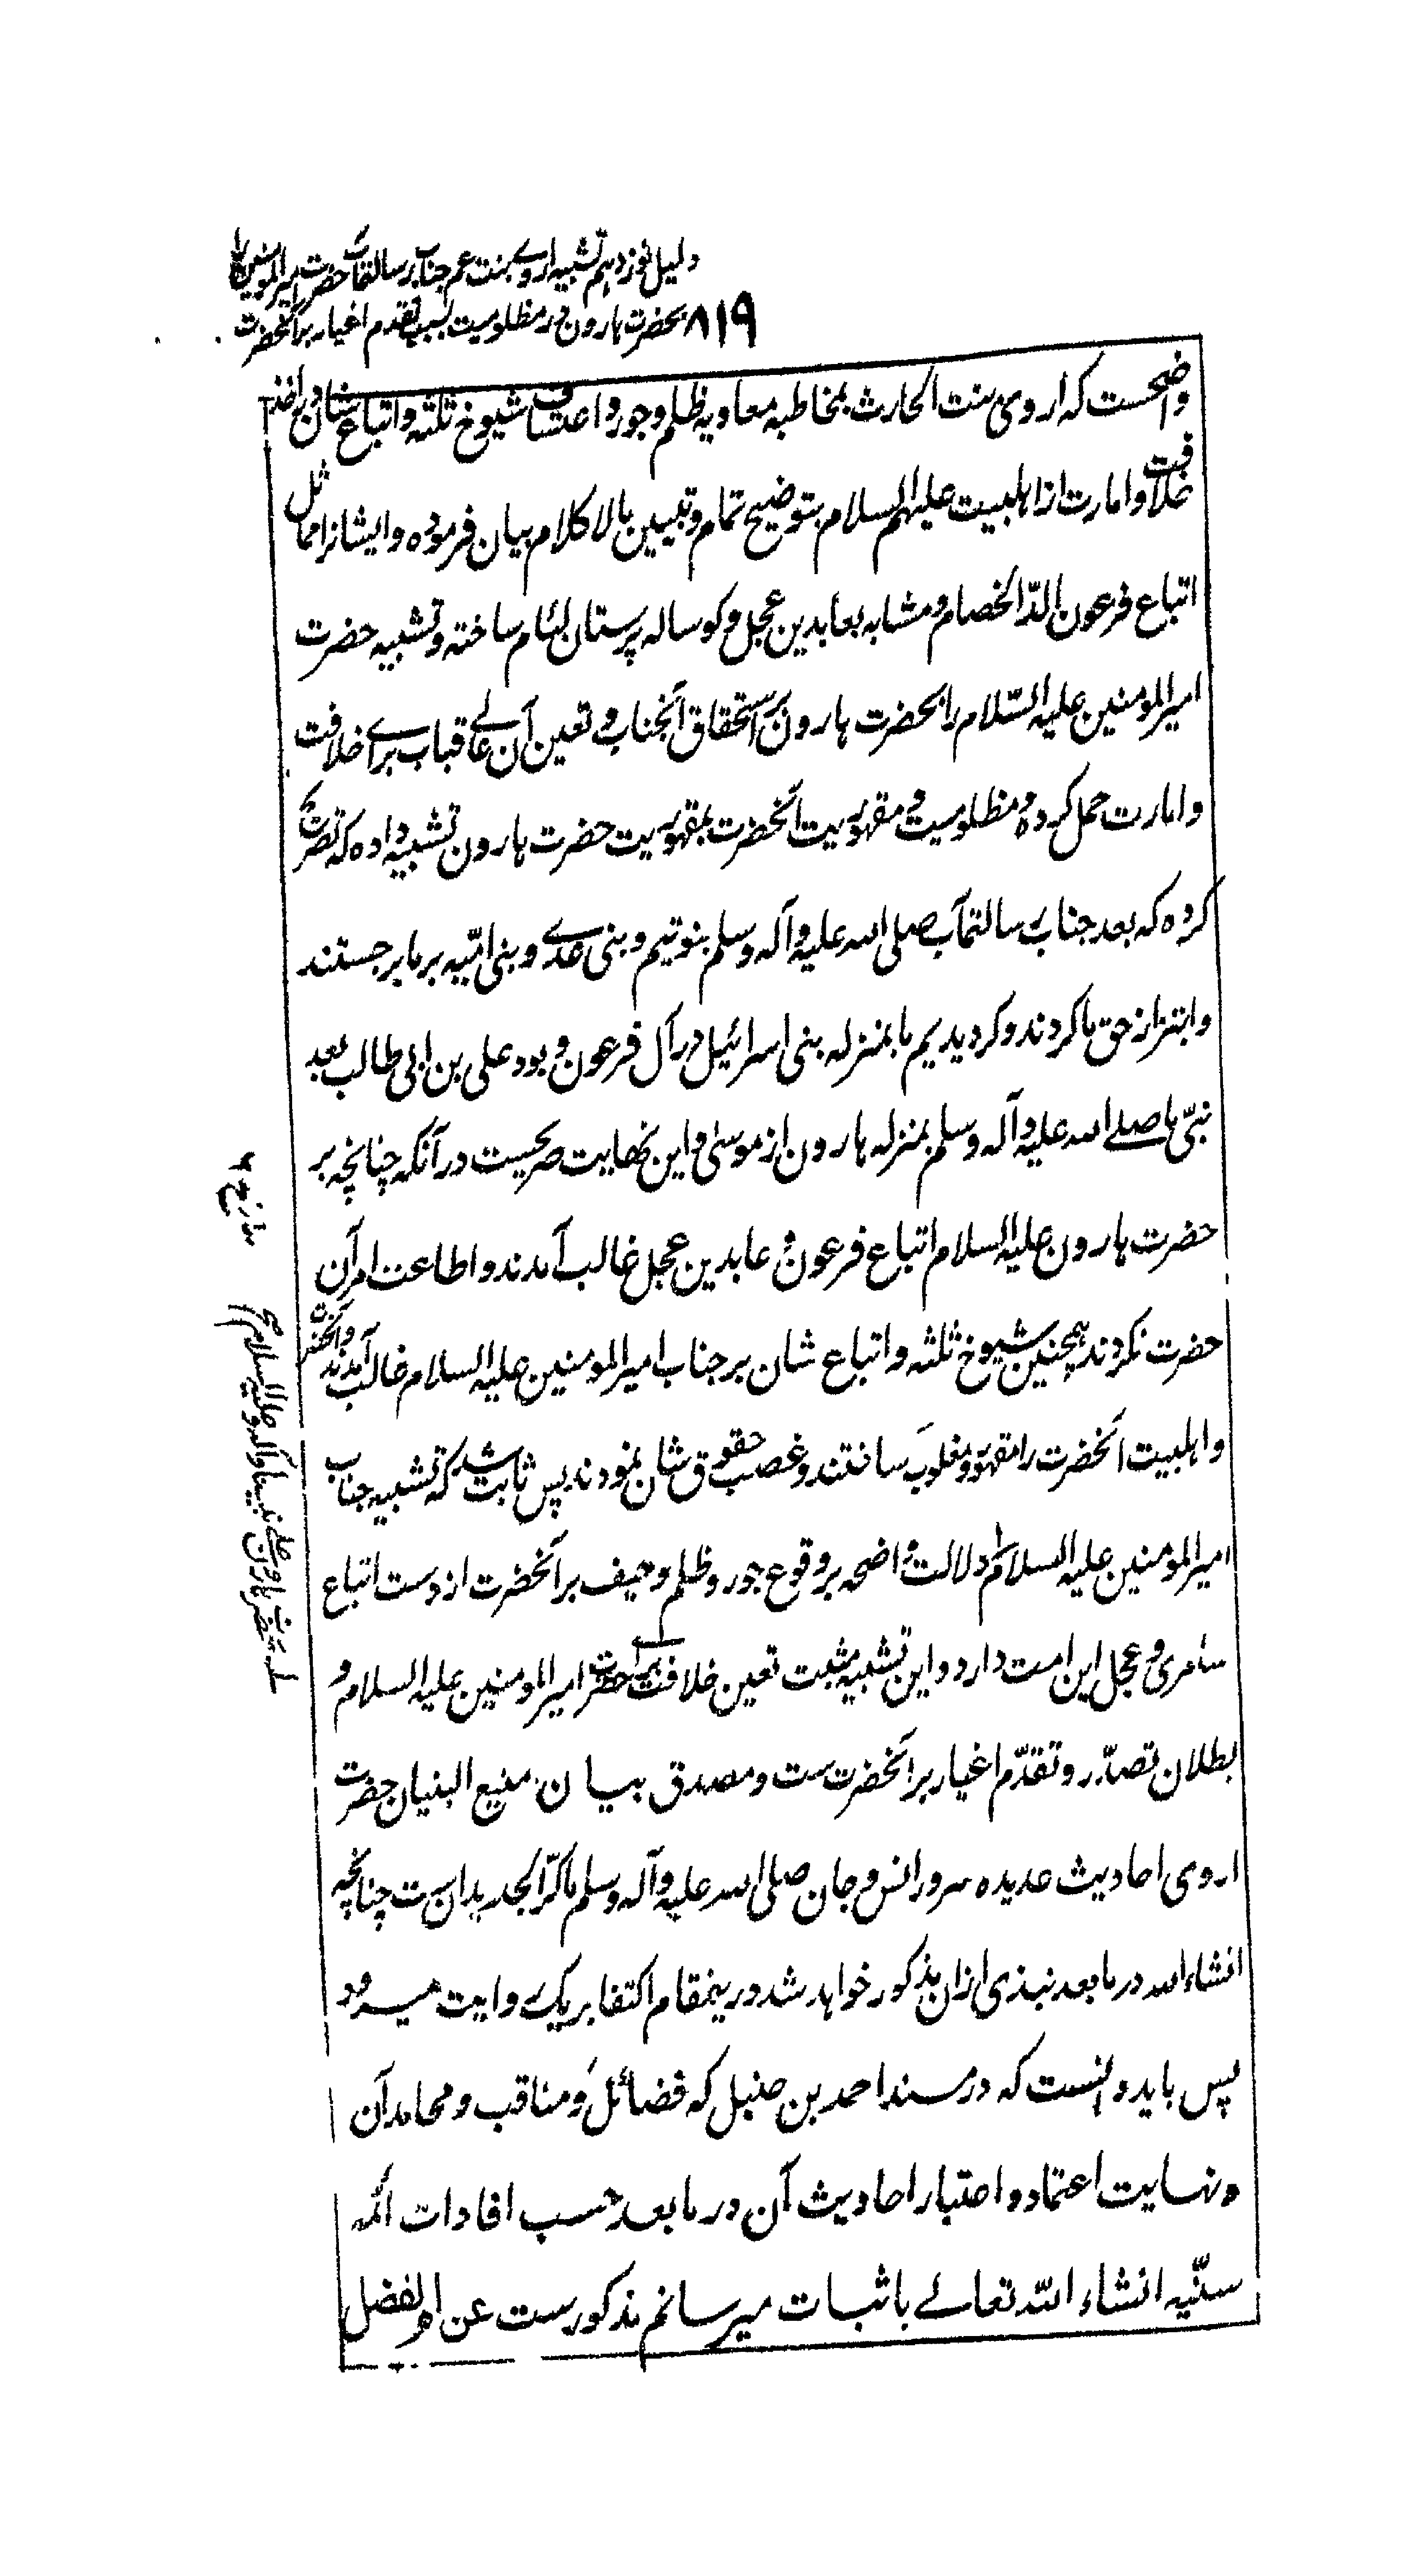 دلیل نوزدهم تشبیه اروی بنت عم جناب رسالتمآب حضرت امیرالمومنین را
۸۱۹ بحضرت هارون در مظلومیت بسبب تقدم اغیار بر آنحضرت
واضحست که اروی بنت الحارث بمخاطبه معاویه ظلم و جور و اعتساف شیوخ ثلثه و اتباع شان در اخذ
خلافت و امارت از اهلبیت علیهم السلام بتوضیح تمام و تبیین بالا کلام بیان فرموده و ایشانرا مماثل
اتباع فرعون الدّ الخصام و مشابه بعابدین عجل و کوساله پرستان لئام ساخته و تشبیه حضرت
امیر المومنین علیه السّلام را بحضرت هارون بر استحقاق آنجناب و تعین آن عالے قباب براے خلافت
و امارت حمل کرده و مظلومیت و مقهوریت آنحضرت بمقهوریت حضرت هارون تشبیه داده که تصریح
کرده که بعد جناب رسالتمآب صلی الله علیه و آله و سلم بنو تیم و بنی عدے و بنی امّیه بر ما برجستند
و ابتزاز حق ما کردند و کردیدیم ما بمنزله بنی اسرائیل در آل فرعون و بود علی بن ابی طالب بعد
نبیّ ما صلے الله علیه و آله و سلم بمنزله هارون از موسی و این نهایت صریحست در آنکه چنانچه بر
حضرت هارون علیه السلام اتباع فرعون و عابدین عجل غالب آمدند و اطاعت امر آن
حضرت نکردند همچنین شیوخ ثلثه و اتباع شان بر جناب امیر المومنین علیه السلام غالب آمدند و آنحضرت
و اهلبیت آنحضرت را مقهور و مغلوب ساختند و غصب حقوق شان نمودند پس ثابت شد که تشبیه جناب
امیر المومنین علیه السلام دلالت واضحه بر وقوع جور و ظلم و حیف بر آنحضرت از دست اتباع
سامری و عجل این امت دارد و این تشبیه مثبت تعین خلافت براے حضرت امیر المومنین علیه السلام و
بطلان تصدّر و تقدّم اغیار بر آنحضرت ست و مصدق بیان منیع البنیان حضرت
اروی احادیث عدیده سرور انس و جان صلی الله علیه و آله و سلم ما کرّ الجدیدان ست چنانچه
انشاء الله در ما بعد نبذی ازان مذکور خواهد شد و درینمقام اکتفا بر یک روایت میرود
پس باید دانست که در مسند احمد بن حنبل که فضائل و مناقب و محامد آن
و نهایت اعتماد و اعتبار احادیث آن در ما بعد حسب افادات ائمه
سنّیه انشاء الله تعالے باثبات میرسانم مذکورست عن ام الفضل
بحضرت هارون علی نبینا و آله و علیه السلام صح